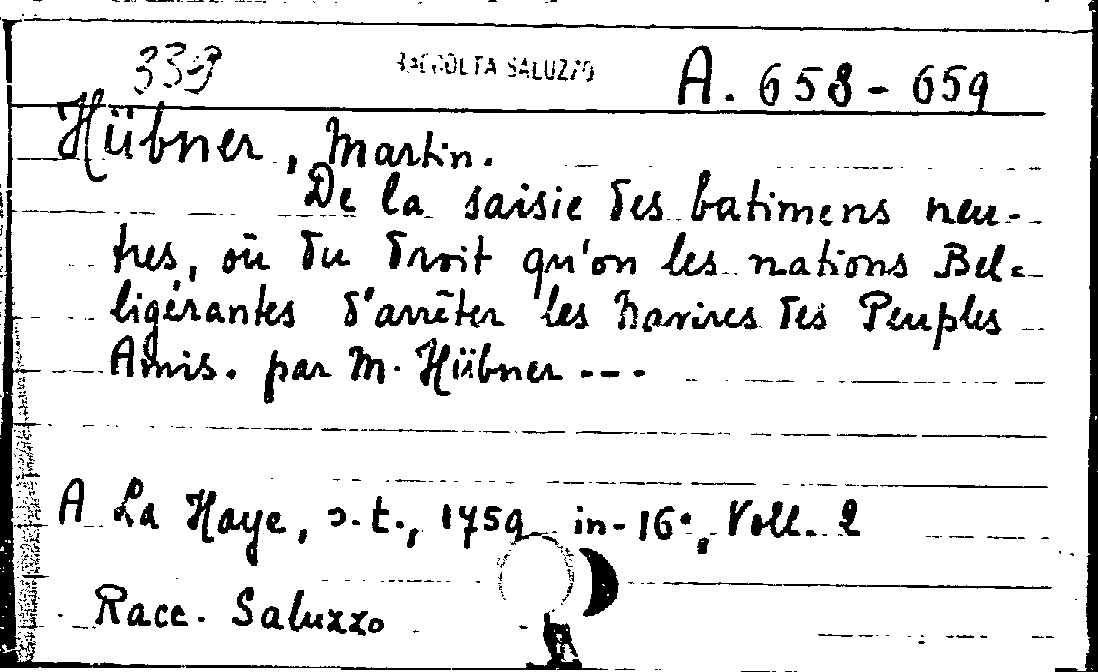 339 RACCOLTA SALUZZO A. 658 - 659
Hübner, Martin.
De la saisie des batimens neu-
tres, où du droit qu'on les nations Bel-
ligérantes d'arrêter les navires des Peuples
Amis. par M. Hübner ---
A La Haye, s.t., 1759 in-16°, Voll. 2
Racc. Saluzzo